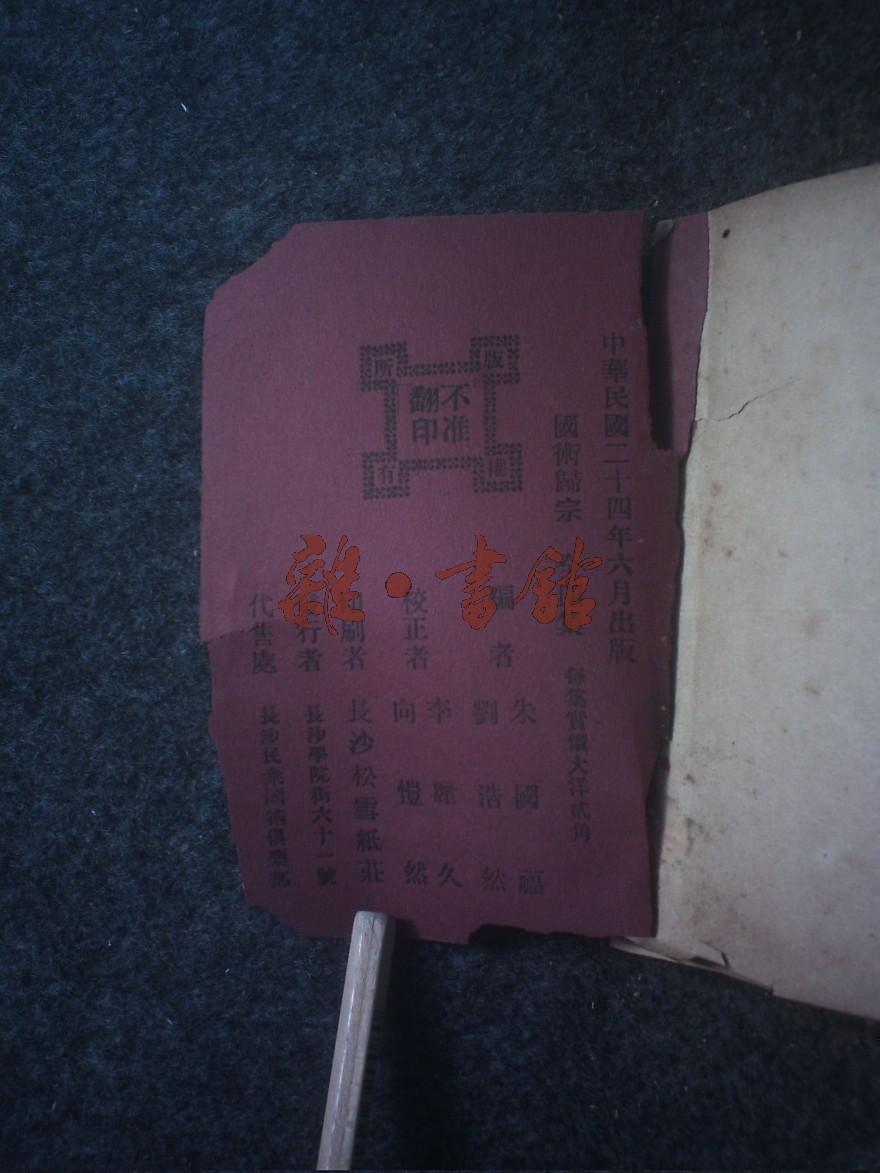 中華民國二十四年六月出版
國術歸宗
每集實價大洋貳角
版權所有
不准翻印
編者
朱國福
劉浩然
校正者
李麗久
向愷然
印刷者
長沙松雪紙莊
發行者
長沙學院街六十一號
代售處
長沙民衆國術俱樂部
雜·書館